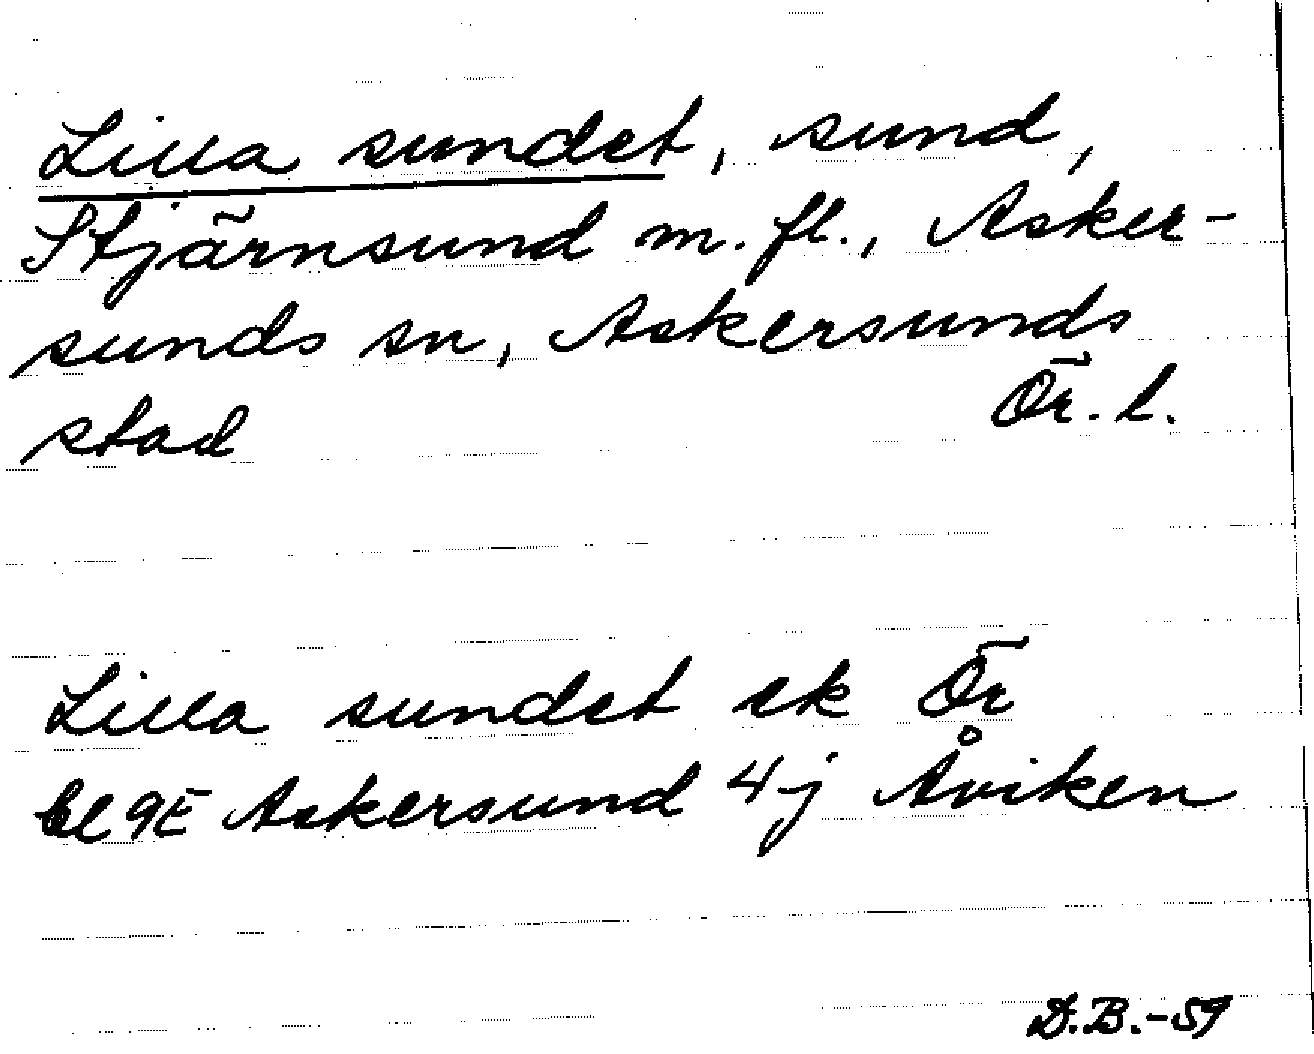 Lilla sundet, sund,
Stjärnsund m.fl., Asker-
sunds sn, Askersunds
stad Ör. l.
Lilla sundet ek Ör
bl 9E Askersund 4j Åviken
D.B.-59